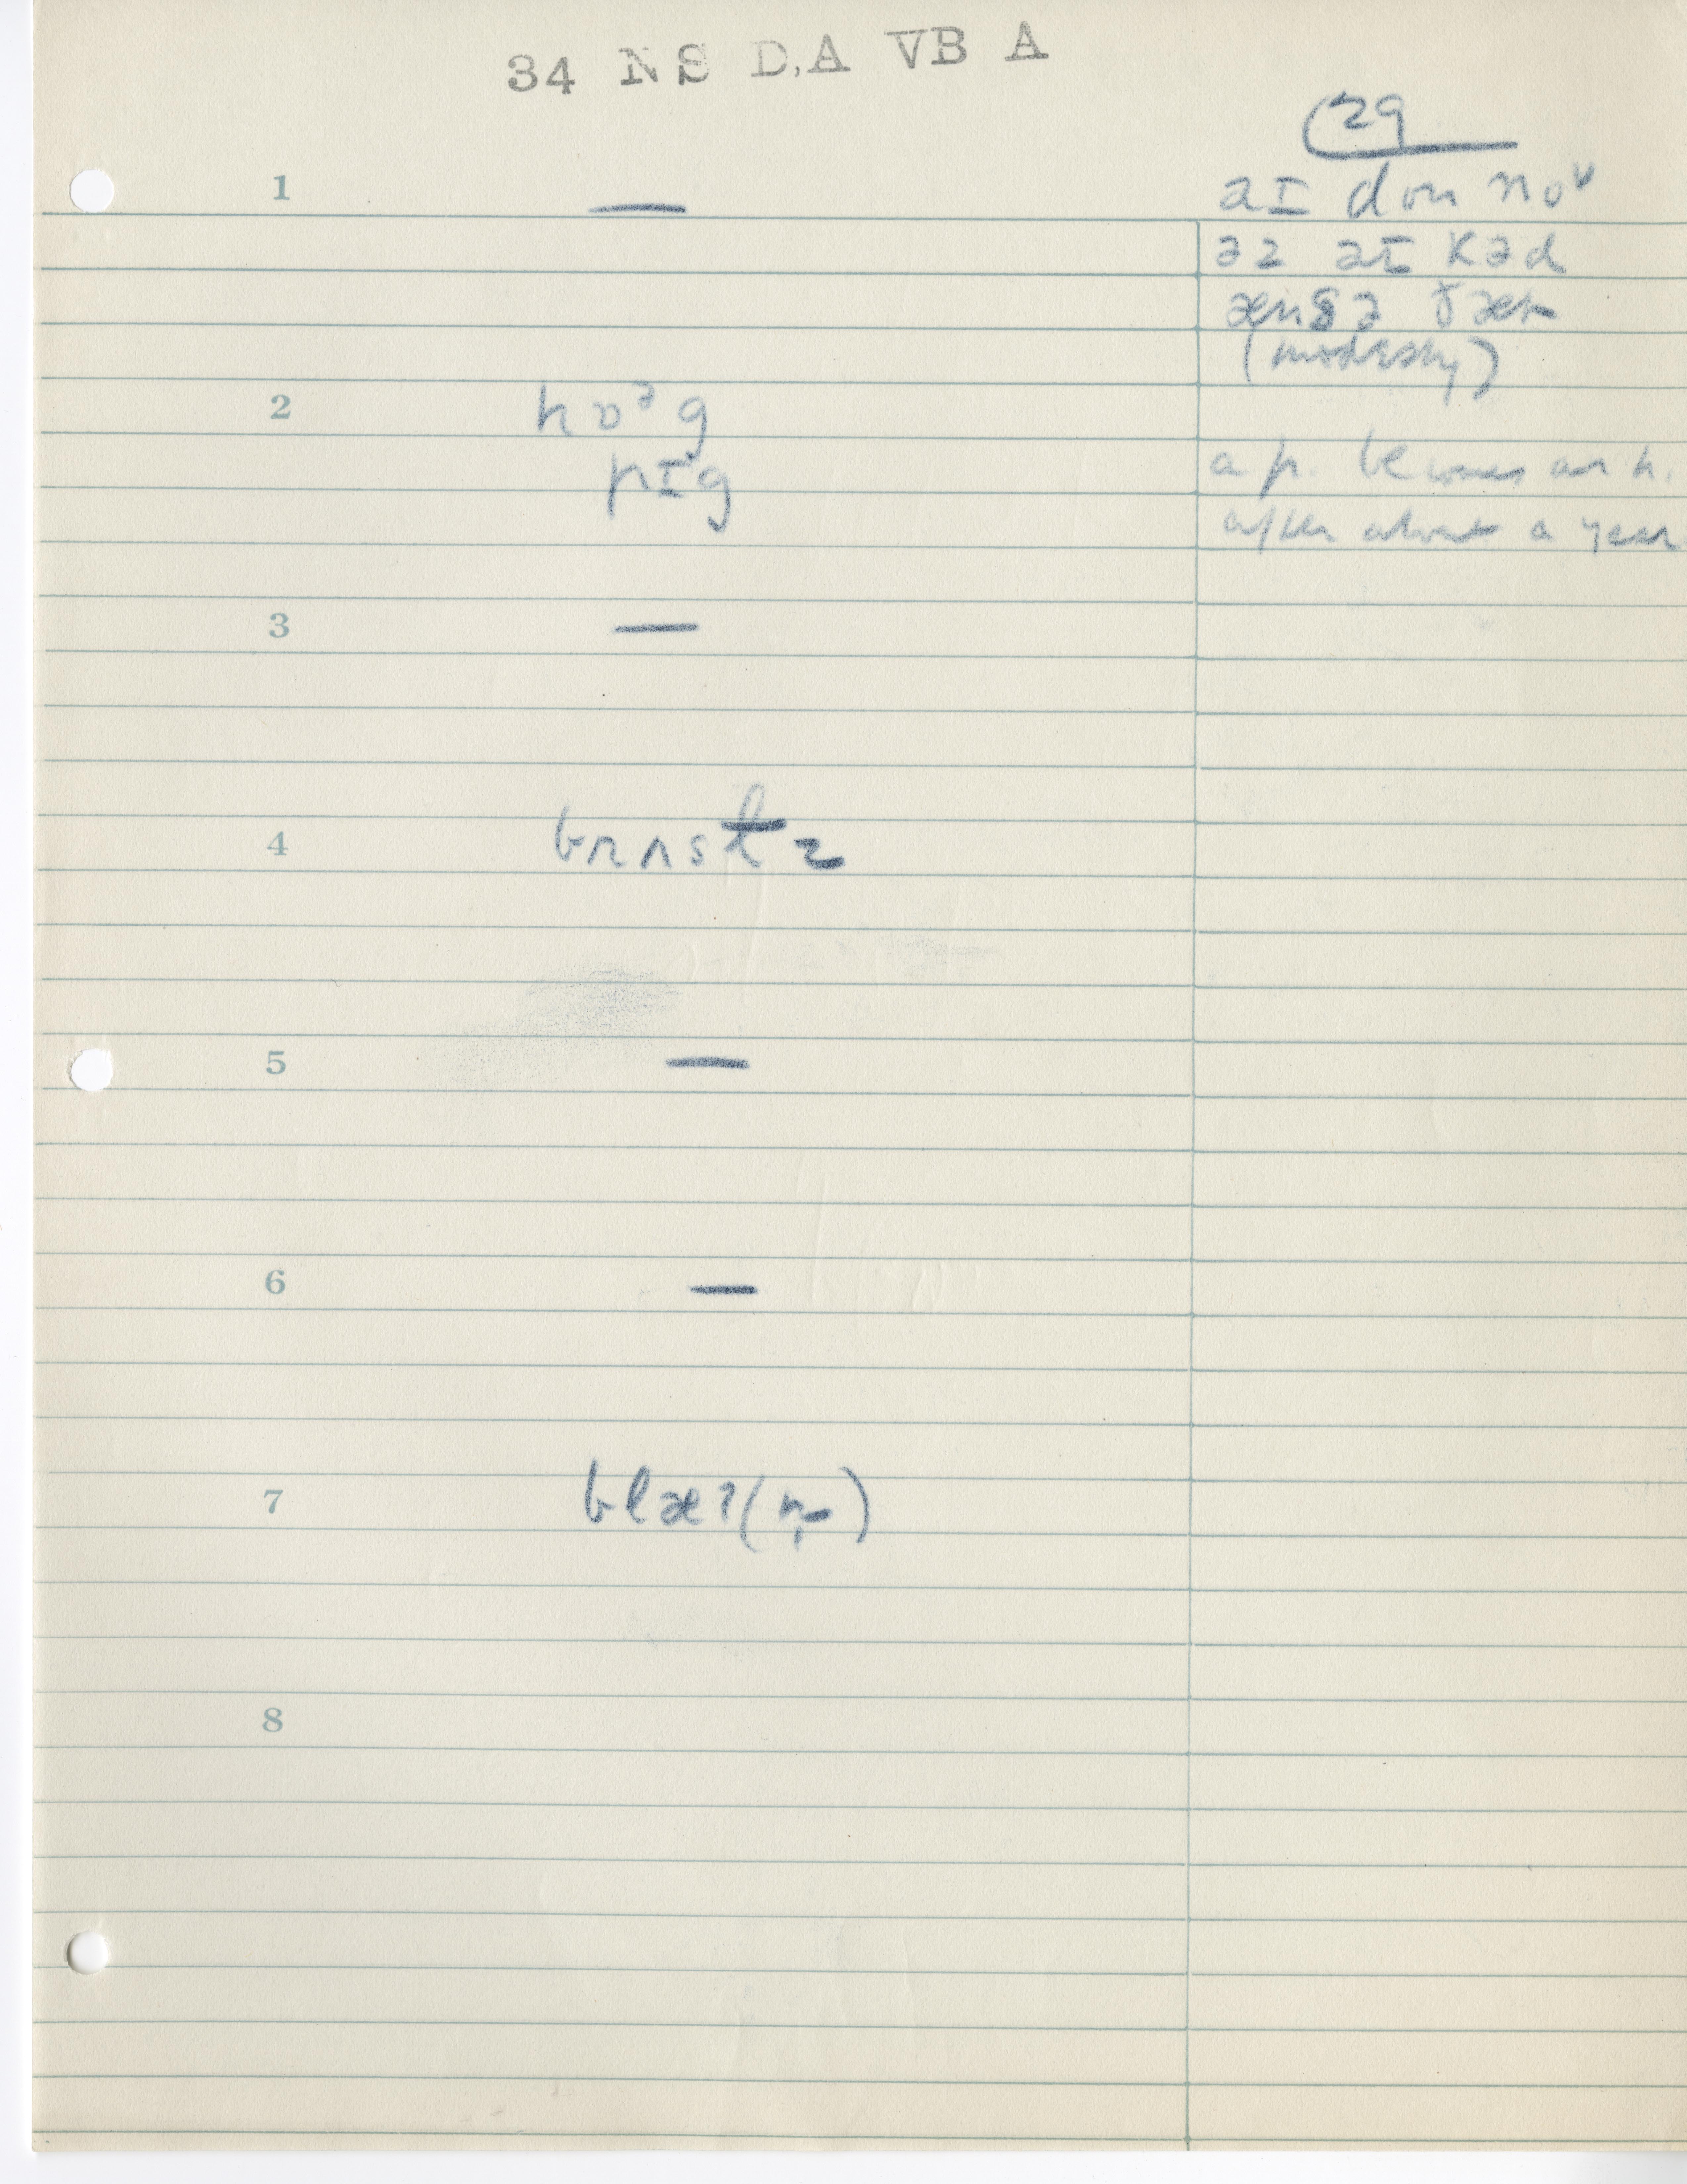 34 NS D,A VB A
29
aɪ don noᵛ
əz aɪ kəd
ænsə ðæt
(modestly)
1 —
2 hɒᵊg
pɪg
a p. becomes an h.
after about a year
3 —
4
5 —
6 —
7
8